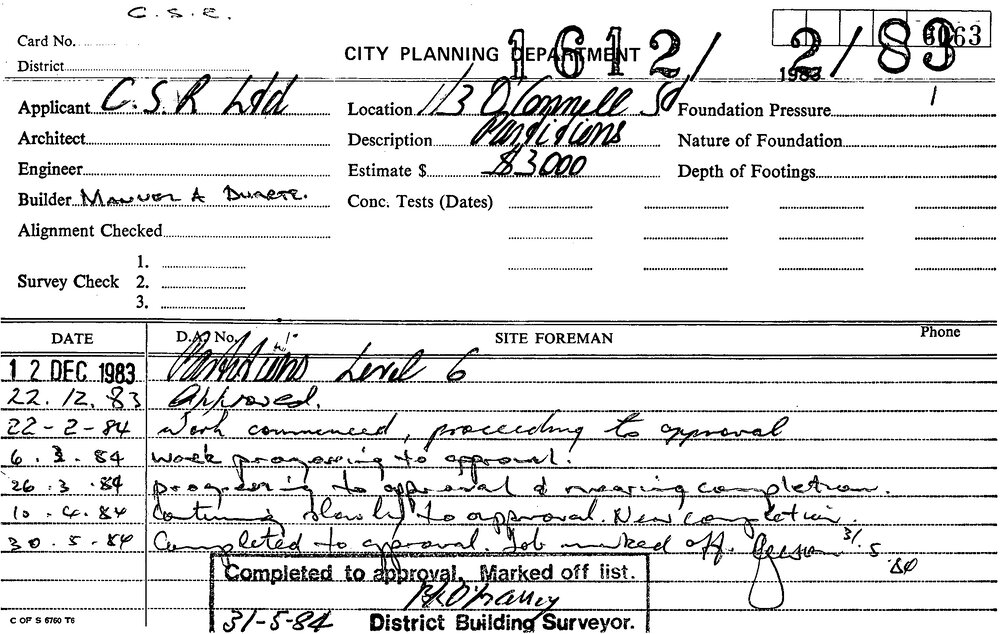 C.S.E.
Card No.
CITY PLANNING DEPARTMENT 1612/2/83 6063
District 1983
Applicant C.S.R Ltd Location 1/3 O'Connell St Foundation Pressure
Architect Description Partitions Nature of Foundation
Engineer Estimate $ $3000 Depth of Footings
Builder MANUEL A DUARTE. Conc. Tests (Dates)
Alignment Checked
1.
Survey Check 2.
3.
DATE D.A. No. SITE FOREMAN Phone
12 DEC 1983 Partitions Level 6
22.12.83 Approved.
22-2-84 Work commenced, proceeding to approval
6.3.84 work progressing to approval.
26.3.84 progressing to approval & nearing completion.
10.4.84 Continuing slowly to approval. Near completion.
30.5.84 Completed to approval. Job marked off. 31.5.84
Completed to approval. Marked off list.
31-5-84 District Building Surveyor.
C OF S 6760 T6